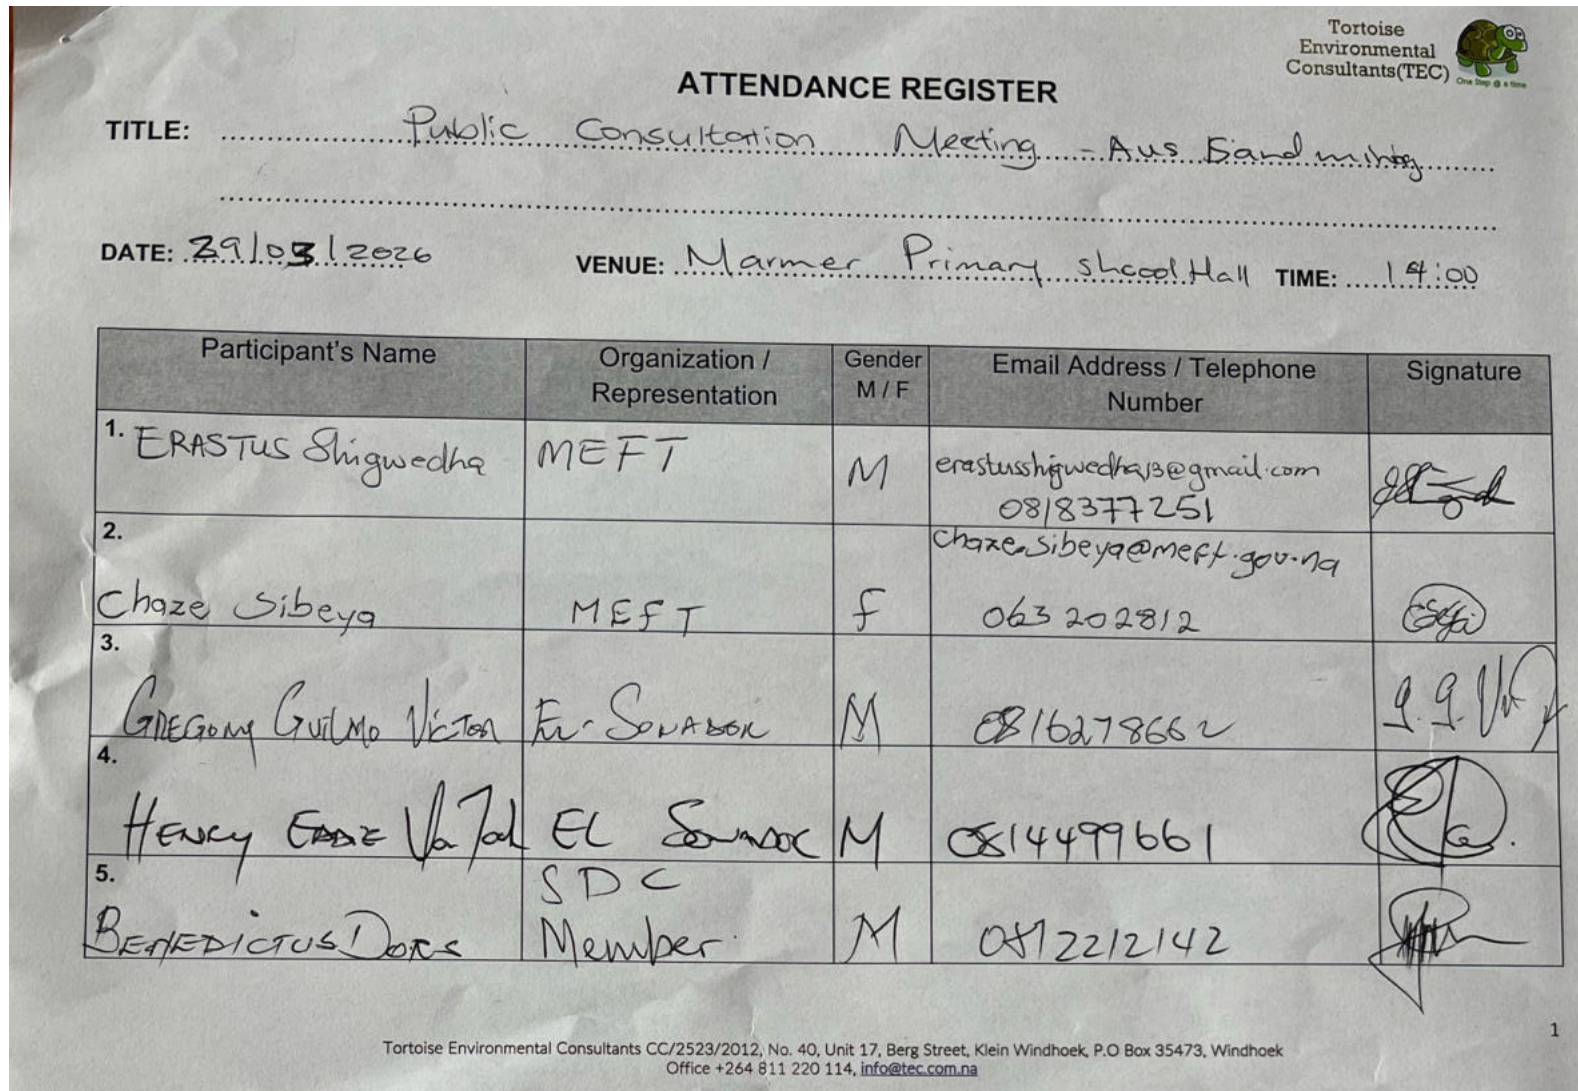 Tortoise
Environmental
Consultants(TEC)
One Step @ a time
ATTENDANCE REGISTER
TITLE: Public Consultation Meeting - Aus Sand mining
DATE: 29/03/2026 VENUE: Marmer Primary shcool Hall TIME: 14:00
Participant's Name
Organization / Representation
Gender M / F
Email Address / Telephone Number
Signature
1. ERASTUS Shigwedha MEFT M erastusshigwedha13@gmail.com
0818377251
2. Chaze Sibeya MEFT F chaze.sibeya@meft.gov.na
063 202812
3. GREGORY GUILMO VICTOR M 0816278662
4. HENRY M 0814499661
5. BENEDICTUS DORS SDC Member M 0812212142
1
Tortoise Environmental Consultants CC/2523/2012, No. 40, Unit 17, Berg Street, Klein Windhoek, P.O Box 35473, Windhoek
Office +264 811 220 114, info@tec.com.na